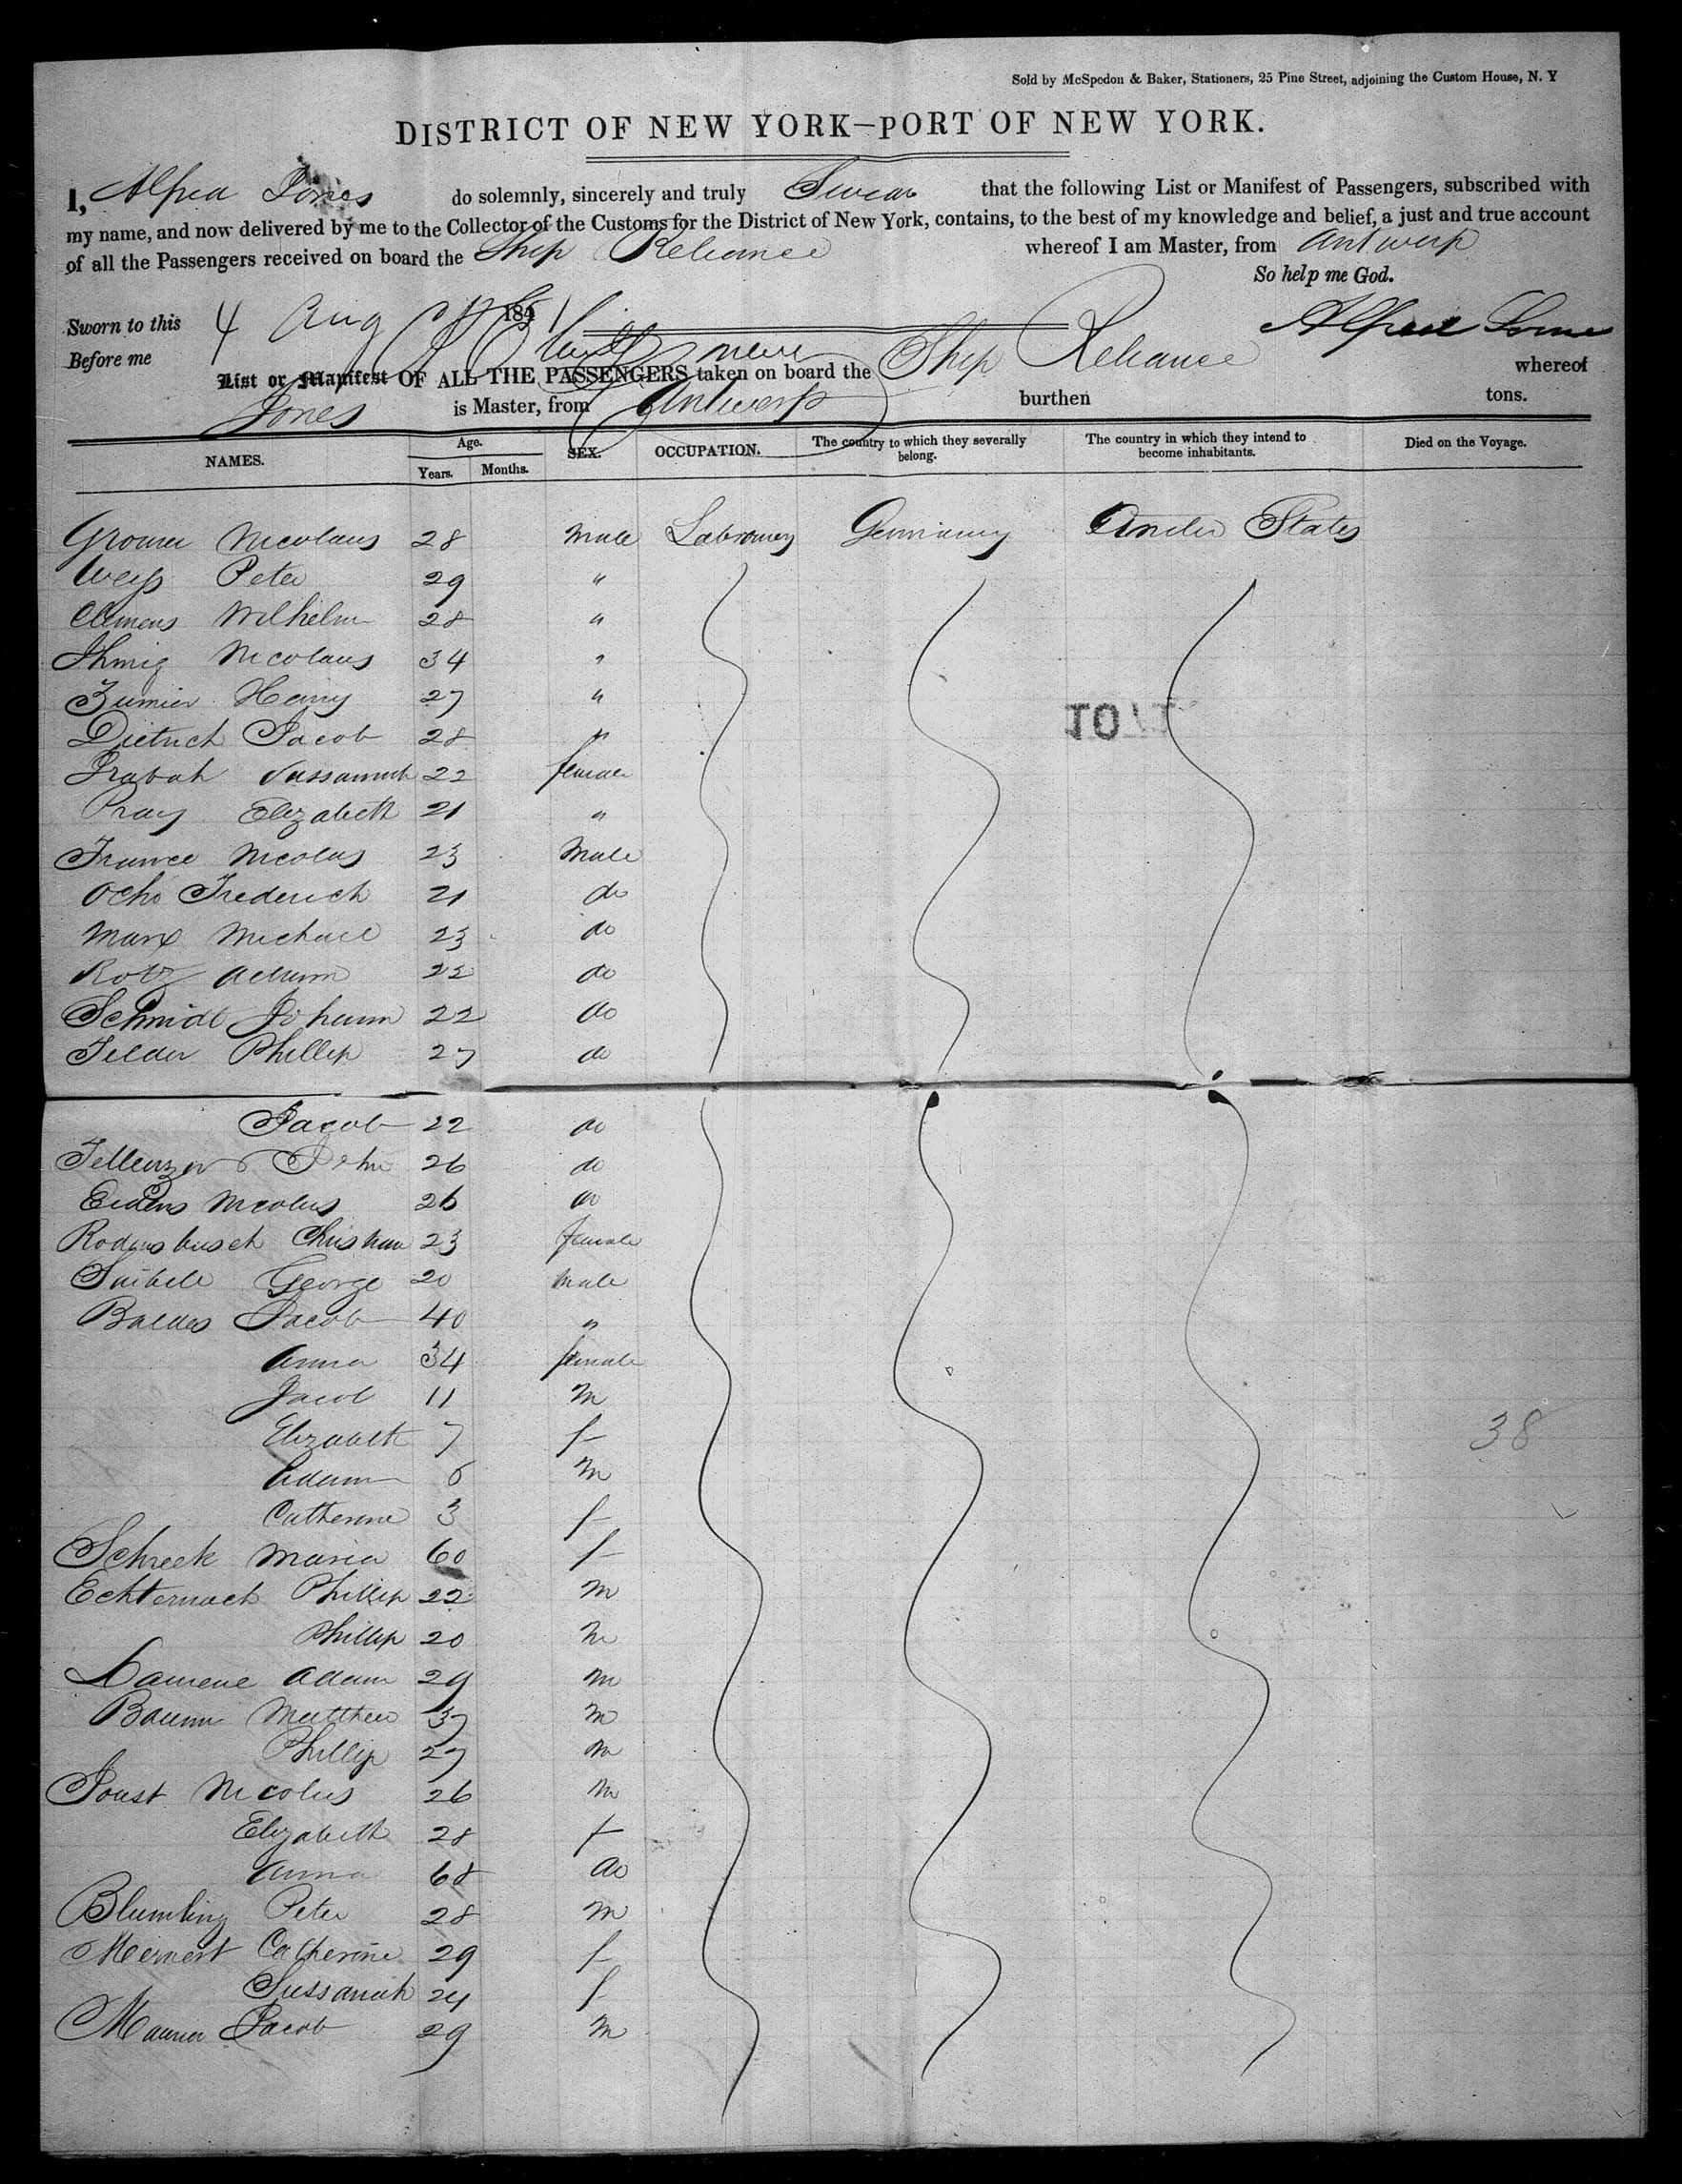 Sold by McSpedon & Baker, Stationers, 25 Pine Street, adjoining the Custom House, N. Y
DISTRICT OF NEW YORK—PORT OF NEW YORK.
I, Alfred Jones do solemnly, sincerely and truly Swear that the following List or Manifest of Passengers, subscribed with
my name, and now delivered by me to the Collector of the Customs for the District of New York, contains, to the best of my knowledge and belief, a just and true account
of all the Passengers received on board the Ship Reliance whereof I am Master, from Antwerp
So help me God.
Sworn to this 4 Aug 1851 Alfred Jones
Before me
List or Manifest OF ALL THE PASSENGERS taken on board the Ship Reliance whereof
Jones is Master, from Antwerp burthen tons.
NAMES. Age. Years. Months. SEX. OCCUPATION. The country to which they severally belong. The country in which they intend to become inhabitants. Died on the Voyage.
Nicolaus 28 male Germany States
Weiss Peter 29 "
Clemens Wilhelm 28 "
Ihmig Nicolaus 34 "
Henry 27 "
Dietrich Jacob 28 "
22 female
Pray Elizabeth 21 "
France Nicolas 23 Male
Ochs Frederich 21 do
Marx Michael 23 do
Rotz Adam 22 do
Schmidt Johann 22 do
Phillip 27 do
Jacob 22 do
John 26 do
Nicolus 26 do
Rodensbusch Christian 23 female
George 20 male
Baldes Jacob 40 "
Anna 34 female
Jacob 11 m
Elizabeth 7 f
38
Adam 6 m
Catherine 3 f
Schreck Maria 60 f
Echternach Phillip 22 m
Phillip 20 m
Adam 29 m
Baum Matthew 37 m
Phillip 27 m
Joust Nicolus 26 m
Elizabeth 28 f
Anna 68 do
Blumling Peter 28 m
Catherine 29 f
Sussanah 24 f
Maurer Jacob 29 m